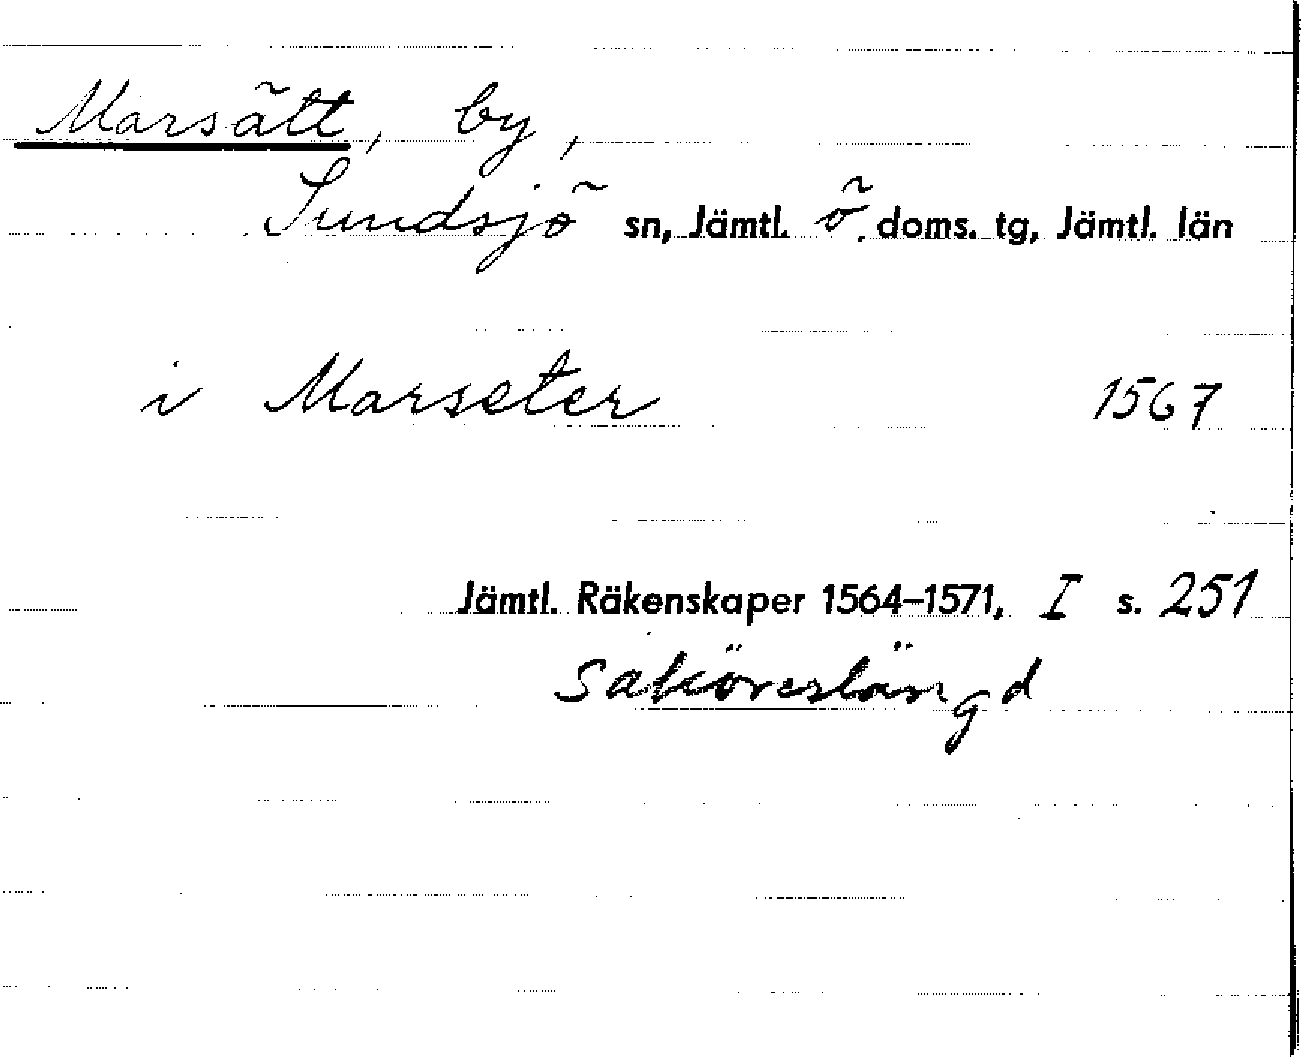 Marsätt, by,
Sundsjö sn, Jämtl. ö. doms. tg, Jämtl. län
i Marseter 1567
Jämtl. Räkenskaper 1564–1571, I s. 251
Saköreslängd